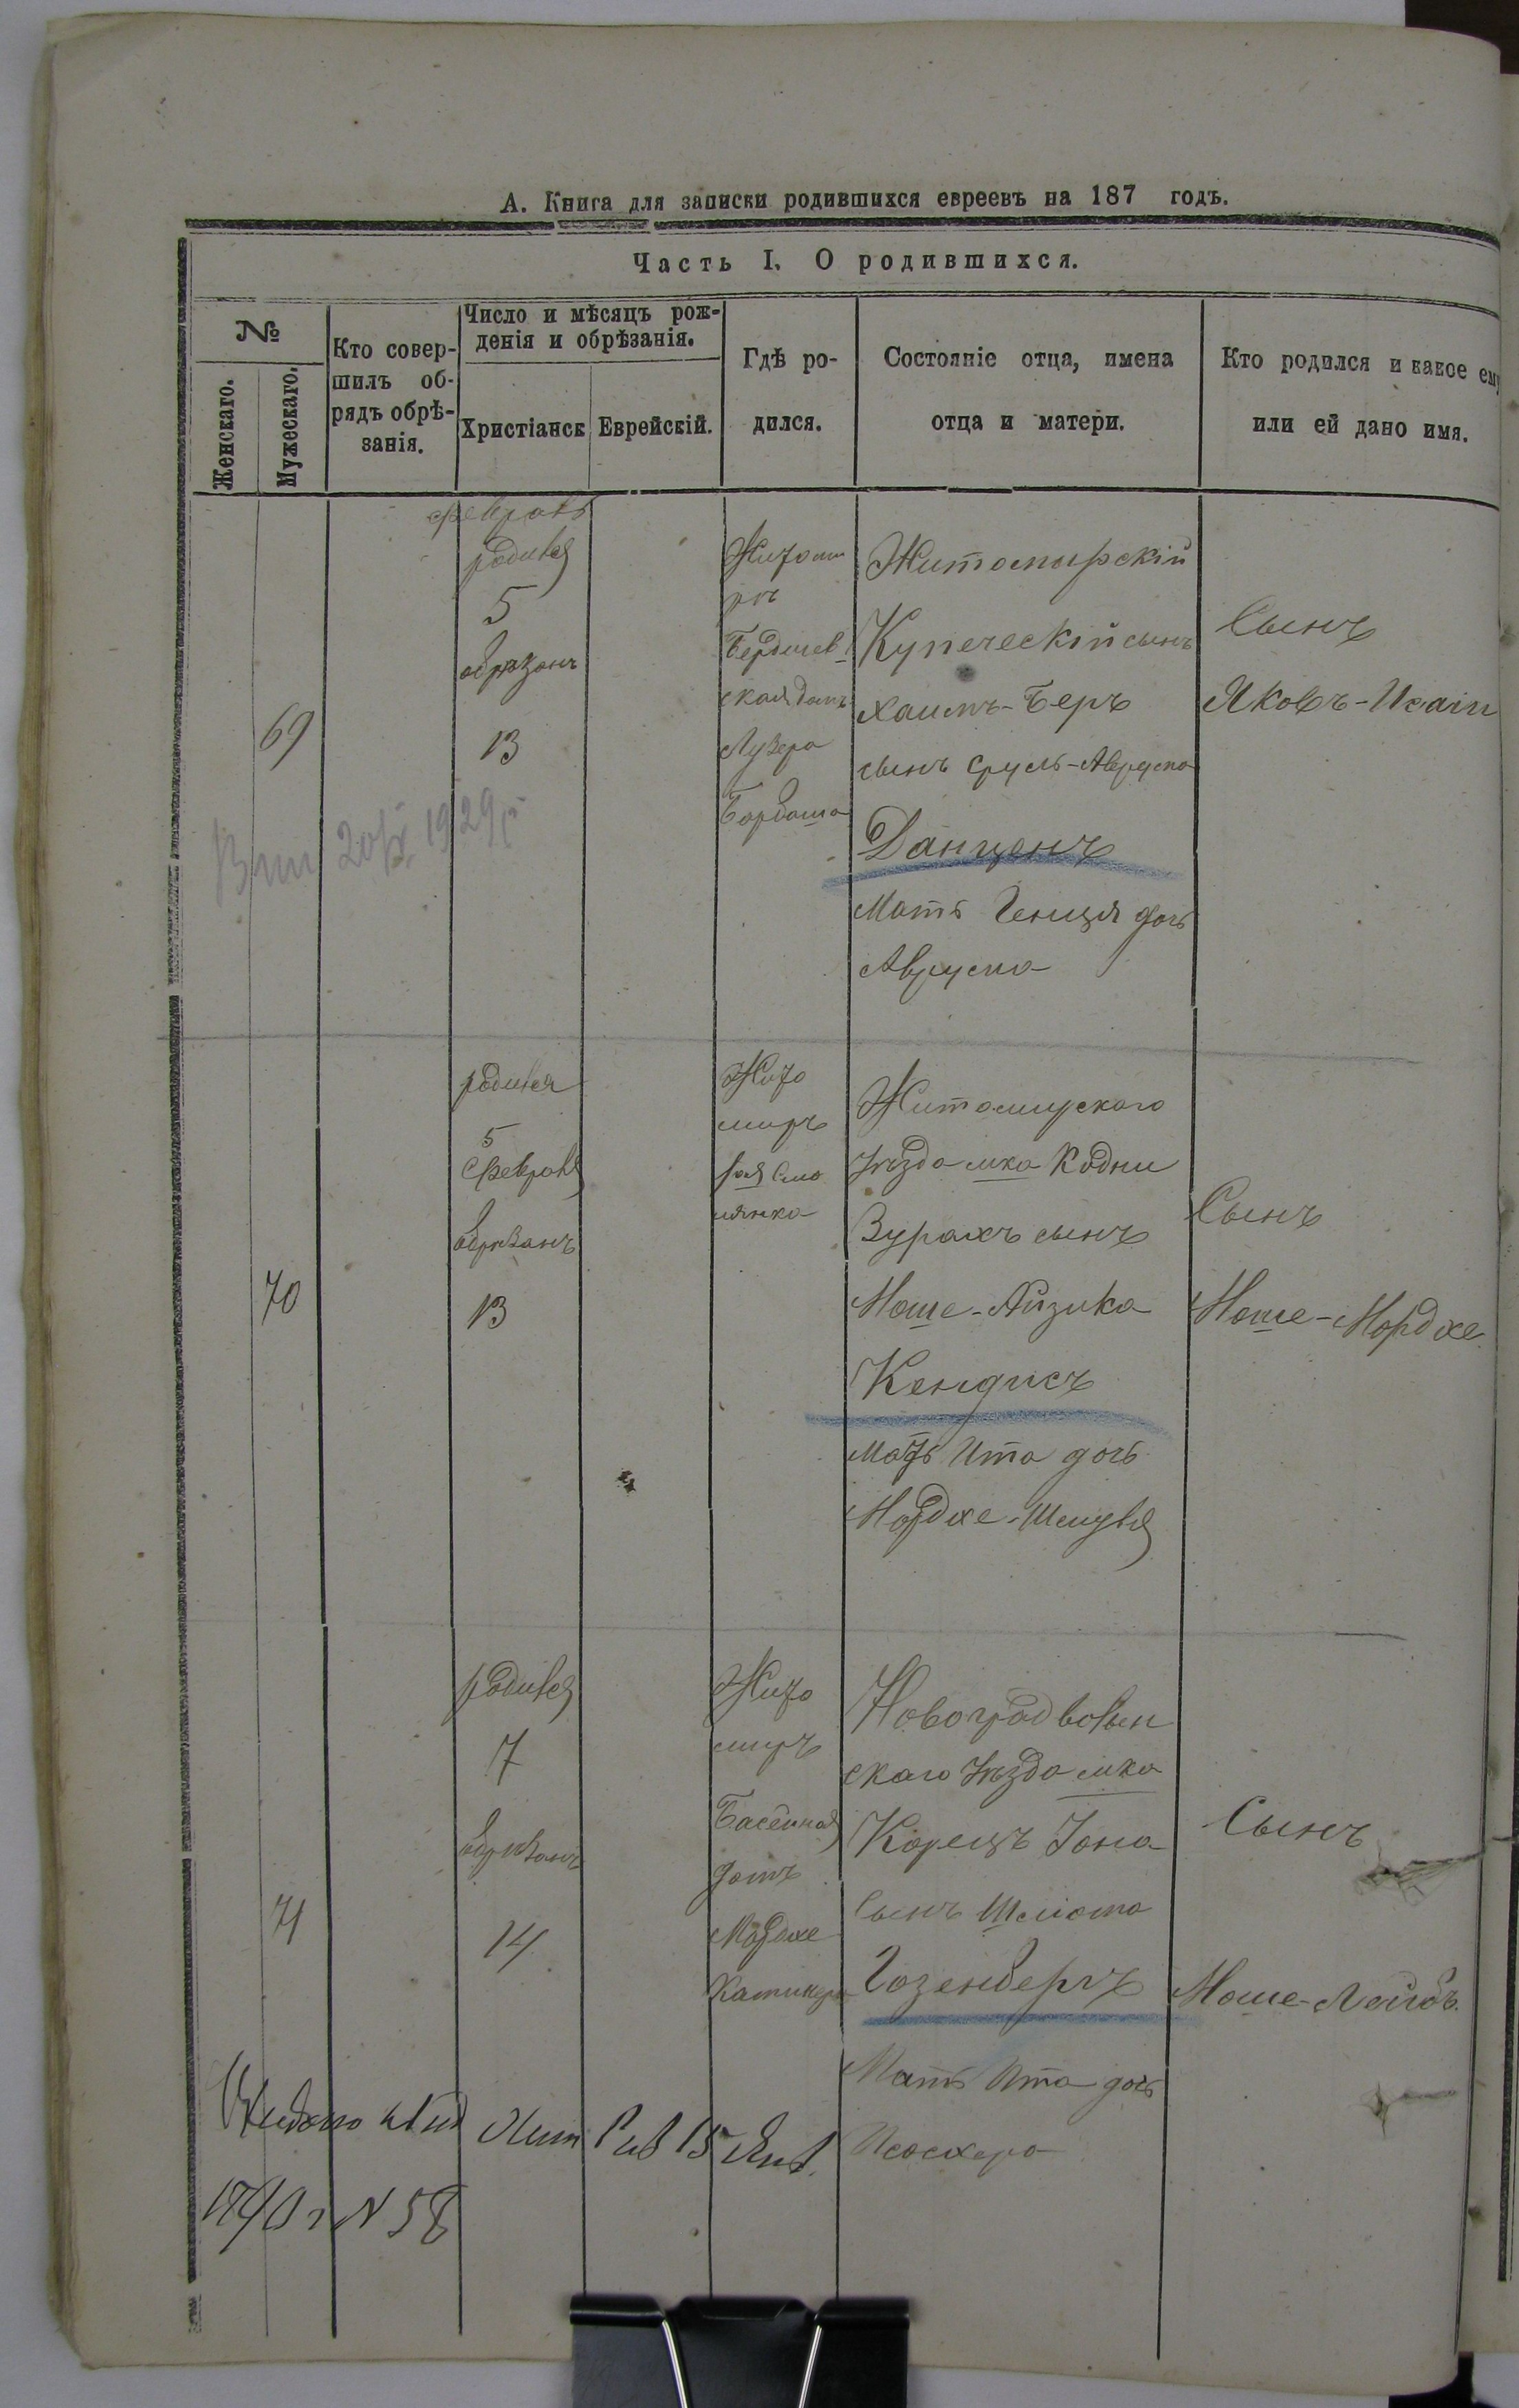 А. Книга для записки родившихся евреевъ на 187 годъ.
Часть I. О родившихся.
№
Женскаго.
Мужескаго.
Кто совер-
шилъ об-
рядъ обрѣ-
занія.
Число и мѣсяцъ рож-
денія и обрѣзанія.
Христіанск
Еврейскій.
Гдѣ ро-
дился.
Состояніе отца, имена
отца и матери.
Кто родился и какое ему
или ей дано имя.
69
февраль
родился
5
обрѣзанъ
13
Житоми
ръ
Бердичев
ская домъ
Лузера
Бардаша
Житомирскій
Купеческій сынъ
Хаимъ-Беръ
сынъ Сруль-Аврума
Данценъ
Мать Генця дочь
Аврума
Сынъ
Яковъ-Исаіи
20/X 1929 г
70
родился
5
Февраля
обрѣзанъ
13
Жито
миръ
Житомирскаго
уѣзда мка Кодни
Зурахъ сынъ
Моше-Айзика
Кендисъ
мать Ита дочь
Мордхе-Шмуля
Сынъ
Моше-Мордхе
71
родился
7
обрѣзанъ
14
Жито
миръ
Басейная
домъ
Мордхе
Новоградволын
скаго уѣзда мка
Корецъ Іона
Сынъ Шліома
Гозенбергъ
Мать Ита дочь
Исосхера
Сынъ
Моше-Лейбъ.
15 Янв.
1890 г N 58